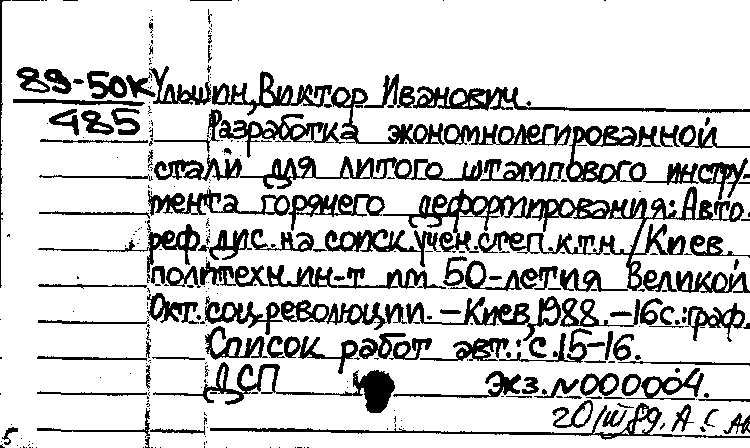 89-50к Ульшин, Виктор Иванович.
485 Разработка экономнолегированной
стали для литого штампового инстру-
мента горячего деформирования: Авто-
реф. дис. на соиск. учен. степ. к.т.н. / Киев.
политехн. ин-т им 50-летия Великой
Окт. соц. революции. - Киев, 1988. - 16с.: граф.
Список работ авт.: с. 15-16.
ДСП Экз. N000004.
20/III 89. А.
5